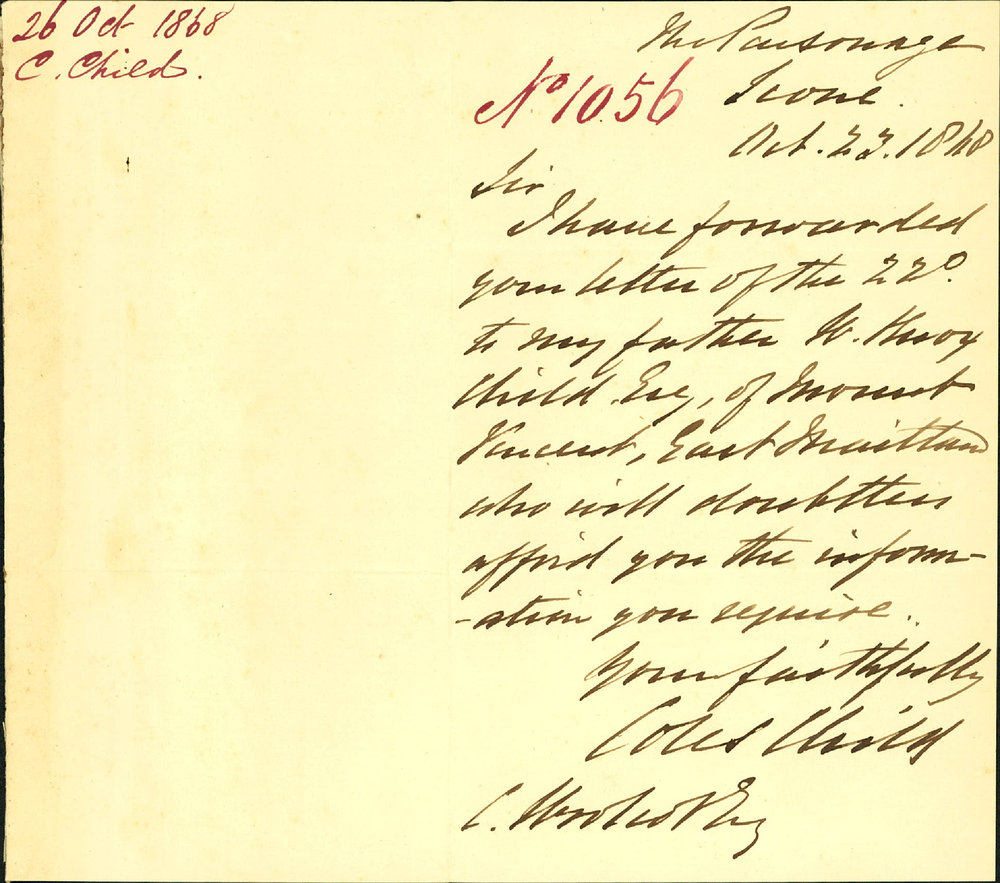 26 Oct 1868
C. Child.
The Parsonage
No 1056
Scone.
Oct. 23. 1868
Sir
I have forwarded
your letter of the 22d.
to my father W. Knox
Child Esq, of Mount
Vincent, East Maitland
who will doubtless
afford you the inform-
-ation you require.
Yours faithfully
Coles Child
C. Esq